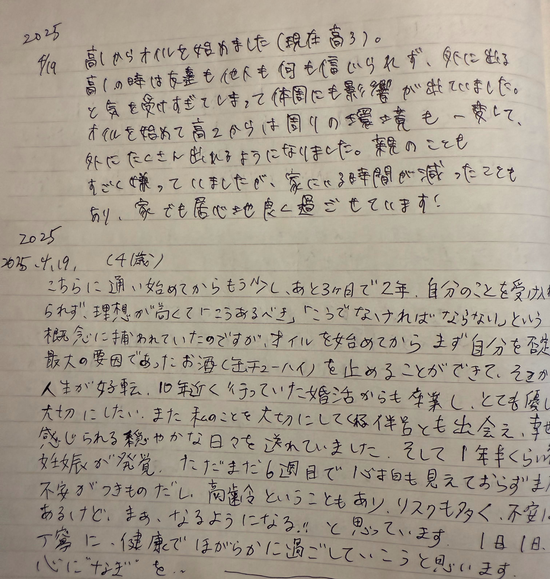 2025
4/19
高1からオイルを始めました(現在高3)。
高1の時は友達も他人も何も信じられず、外に出る
と気を受けすぎてしまって体調にも影響が出ていました。
オイルを始めて高2からは周りの環境も一変して、
外にたくさん出れるようになりました。親のことも
すごく嫌っていましたが、家にいる時間が減ったことも
あり、家でも居心地良く過ごせています!
2025
2025.4.19. (41歳)
こちらに通い始めてからもう少し、あと3ヶ月で2年。自分のことを受け入れ
られず、理想が高くて「こうあるべき」「こうでなければならない」という
概念に捕われていたのですが、オイルを始めてから まず自分を否定
最大の要因であったお酒(缶チューハイ)を止めることができて、そこか
人生が好転、10年近く行っていた婚活からも卒業し、とても優し
大切にしたい、また私のことを大切にしてくれる伴侶とも出会え、幸せ
感じられる穏やかな日々を送れていました。そして1年半くらい
妊娠が発覚。ただまだ6週目で心拍も見えておらずまだ
不安がつきものだし、高齢ということもあり、リスクも多く、不安に
あるけど、まぁ、なるようになる!! と思っています。1日1日、
丁寧に、健康でほがらかに過ごしていこうと思います。
心に"なぎ"を..